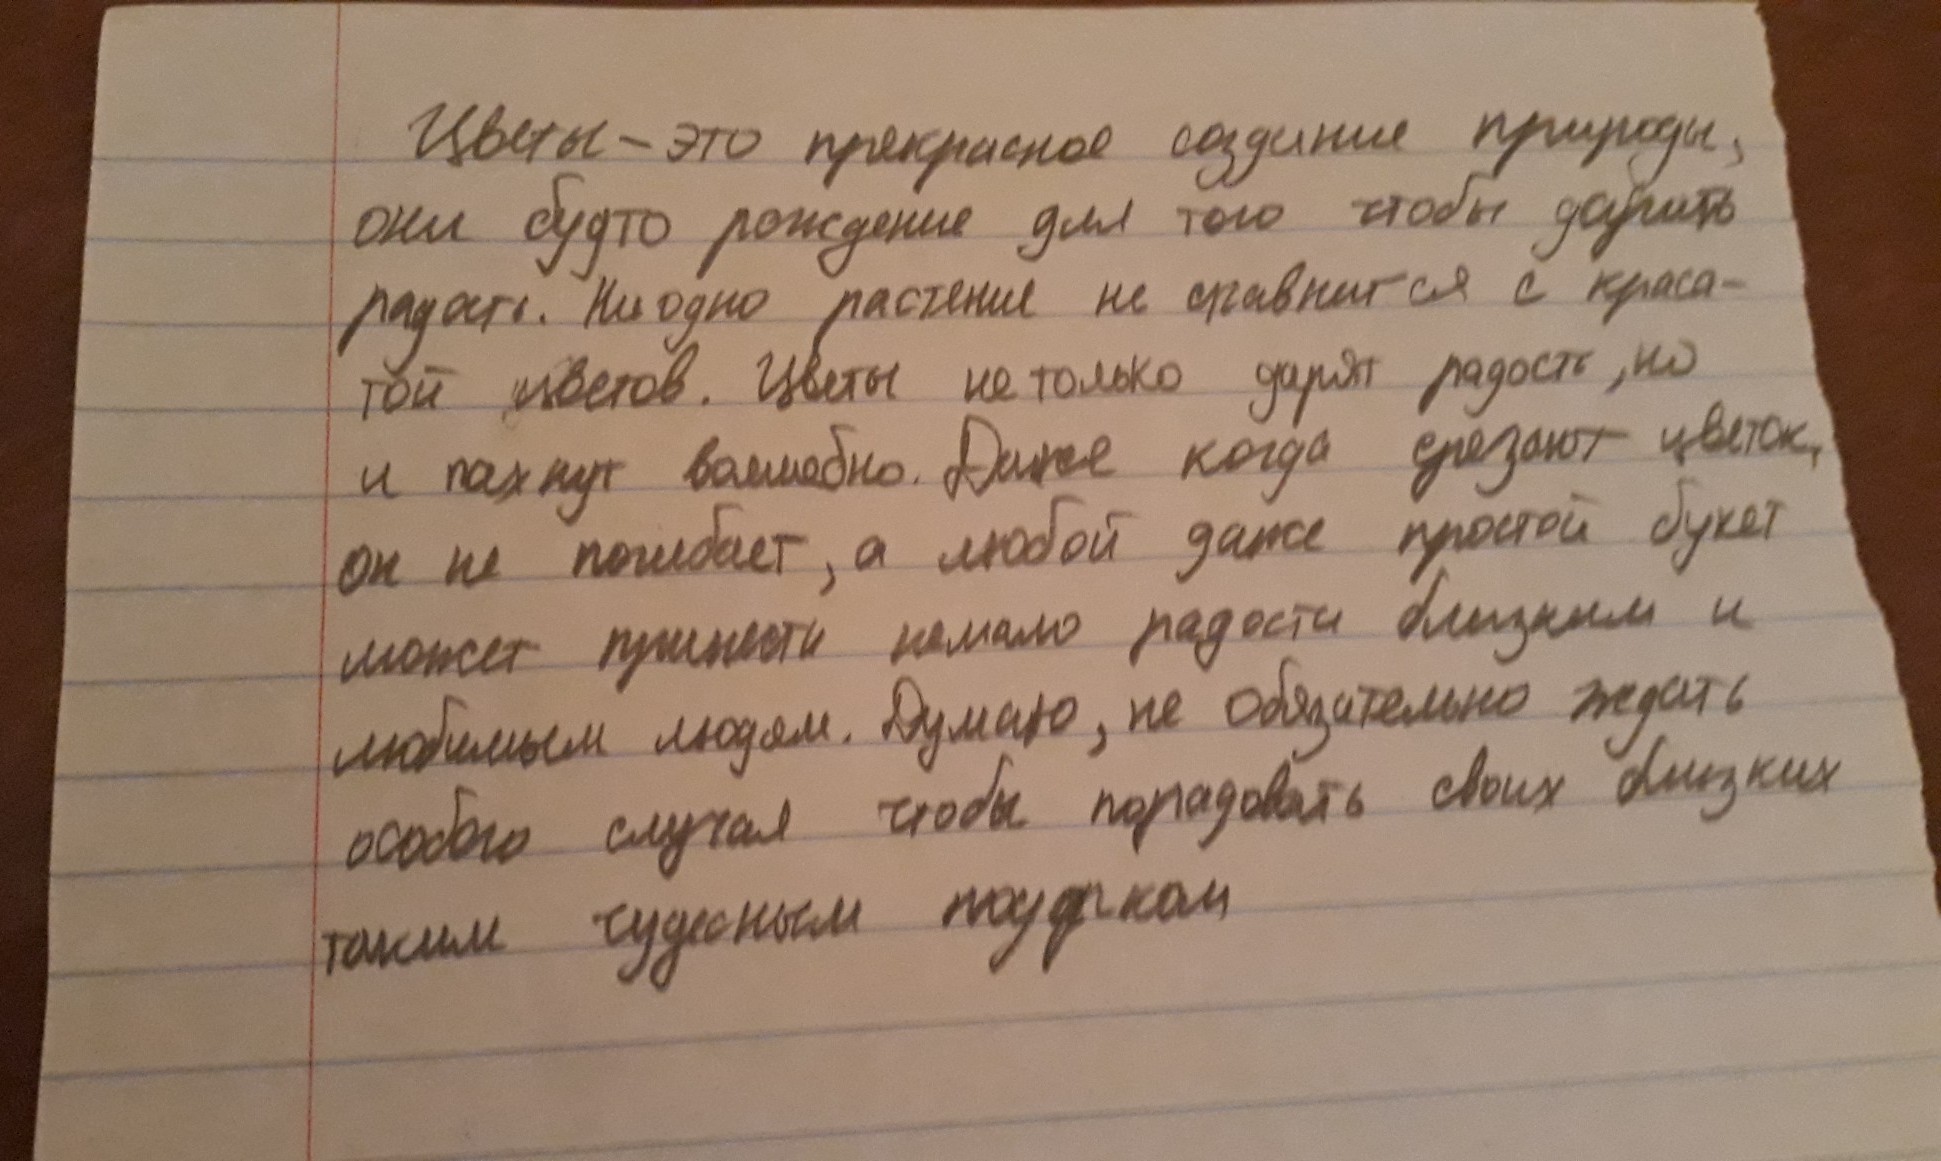 Цветы – это прекрасное создание природы,
они будто рождение для того чтобы дарить
радость. Ни одно растение не сравнится с краса-
той цветов. Цветы не только дарят радость, но
и пахнут волшебно. Даже когда срезают цветок,
он не погибает, а любой даже простой букет
может принести немало радости близким и
любимым людям. Думаю, не обязательно ждать
особого случая чтобы порадовать своих близких
таким чудесным подарком